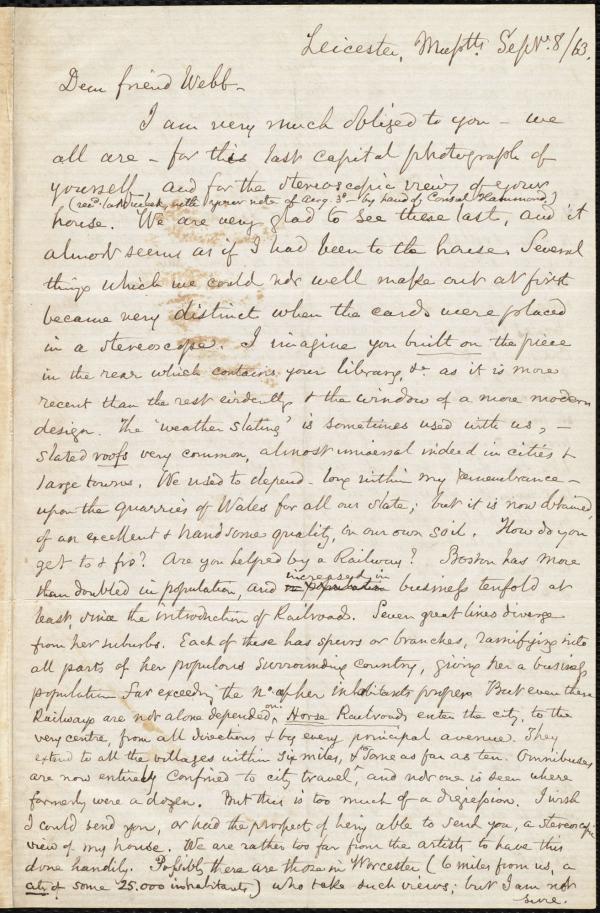 Leicester, Massts. Sept. 8/63.
Dear friend Webb-
I am very much obliged to you - we
all are - for this last capital photograph of
yourself, and for the stereoscopic views of your
(recd. last week, with your note of Aug. 3d - by hand of Consul Hammond)
house. We are very glad to see these last, and it
almost seems as if I had been to the house. Several
things which we could not well make out at first
became very distinct when the cards were placed
in a stereoscope. I imagine you built on the piece
in the rear which contains your library, &c. as it is more
recent than the rest evidently & the window of a more modern
design. The 'weather slating' is sometimes used with us, -
slated roofs very common, almost universal indeed in cities &
large towns. We used to depend - long within my remembrance -
upon the quarries of Wales for all our slate; but it is now obtained,
of an excellent & handsome quality, in our own soil. How do you
get to & fro? Are you helped by a Railway? Boston has more
than doubted in population, and increased in business tenfold at
least, since the introduction of Railroads. Seven great lines diverge
from her suburbs. Each of these has spurs or branches, ramifying into
all parts of her populous surrounding country, giving her a business
population far exceeding the No. of her inhabitants proper. But even these
Railways are not alone depended on. Horse Railroads enter the city, to the
very centre, from all directions & by every principal avenue. They
extend to all the villages within six miles, & some as far as ten. Omnibuses
are now entirely confined to city travel, and not one is seen where
formerly were a dozen. But this is too much of a digression. I wish
I could send you, or had the prospect of being able to send you, a stereoscopic
view of my house. We are rather too far from the artists to have this
done handily. Possibly there are those in Worcester (6 miles from us, a
city of some 25.000 inhabitants,) who take such views; but I am not
sure.